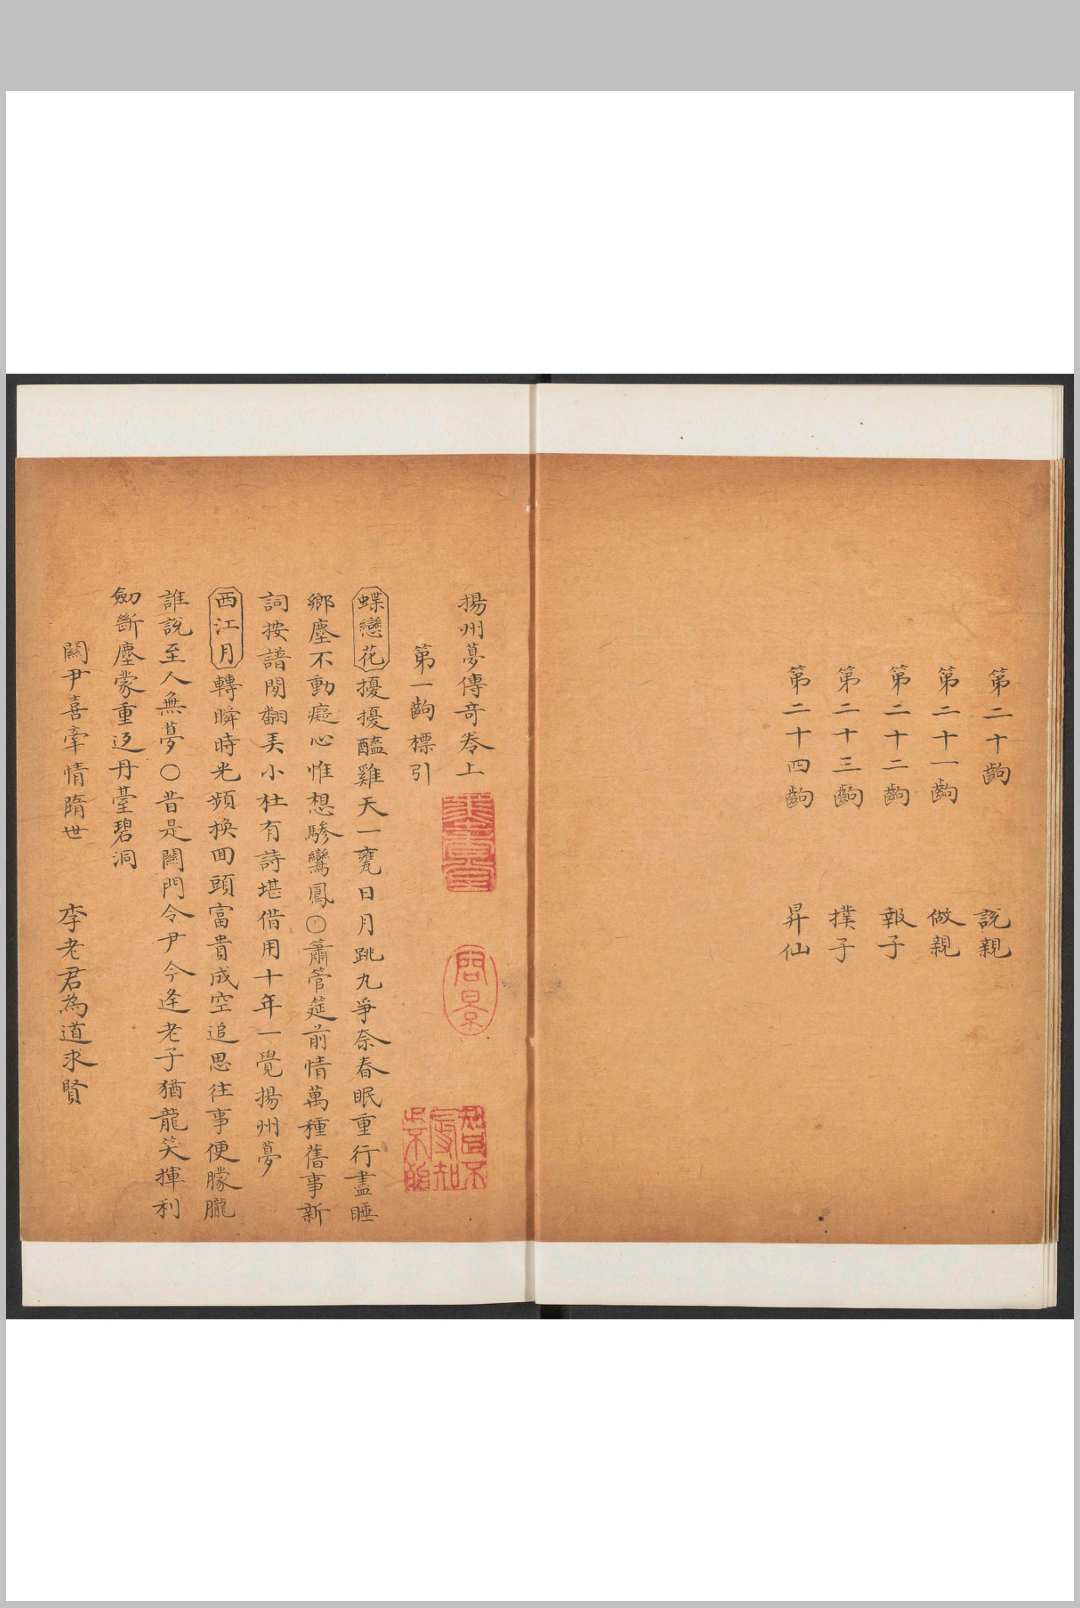 第二十齣 說親
第二十一齣 做親
第二十二齣 報子
第二十三齣 撲子
第二十四齣 昇仙
揚州夢傳奇卷上
第一齣標引
蝶戀花擾擾醯雞天一甕日月跳丸爭奈春眠重行盡睡
鄉塵不動癡心惟想驂鸞鳳〇簫管筵前情萬種舊事新
詞按譜閒翻弄小杜有詩堪借用十年一覺揚州夢
西江月轉瞬時光頻換回頭富貴成空追思往事便朦朧
誰說至人無夢〇昔是關門令尹今逢老子猶龍笑揮利
劒斷塵蒙重返丹臺碧洞
關尹喜牽情墮世 李老君為道求賢